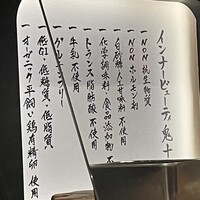 インナービューティ鬼十
一 NON抗生物質
一 NONホルモン剤
一 白砂糖・人工甘味料 不使用
一 化学調味料・食品添加物 不
一 トランス脂肪酸 不使用
一 牛乳 不使用
一 グルテンフリー
一 低GI・低糖質・低脂質
一 オーガニック平飼い鶏有精卵 使用